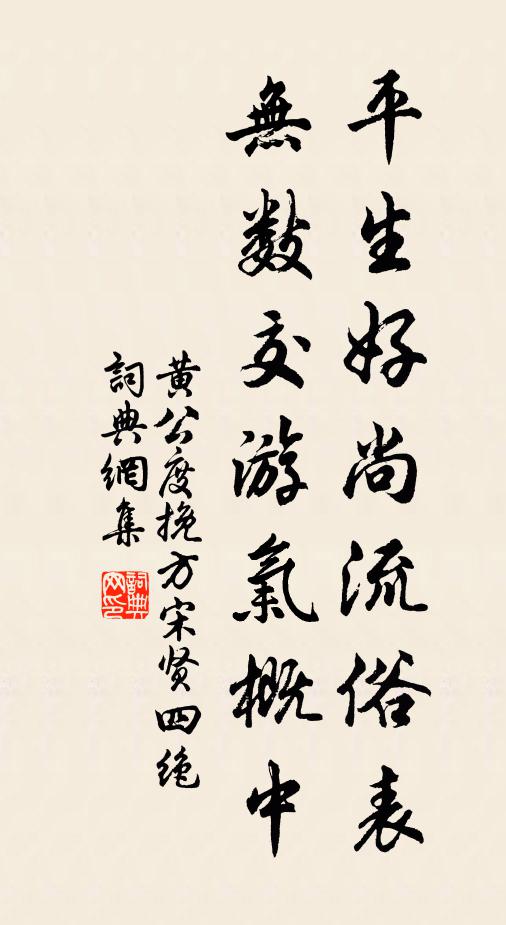 平生好尚流俗表
無數交游氣概中
黄公度挽方宋贤四绝
詞典網集
詞典网印